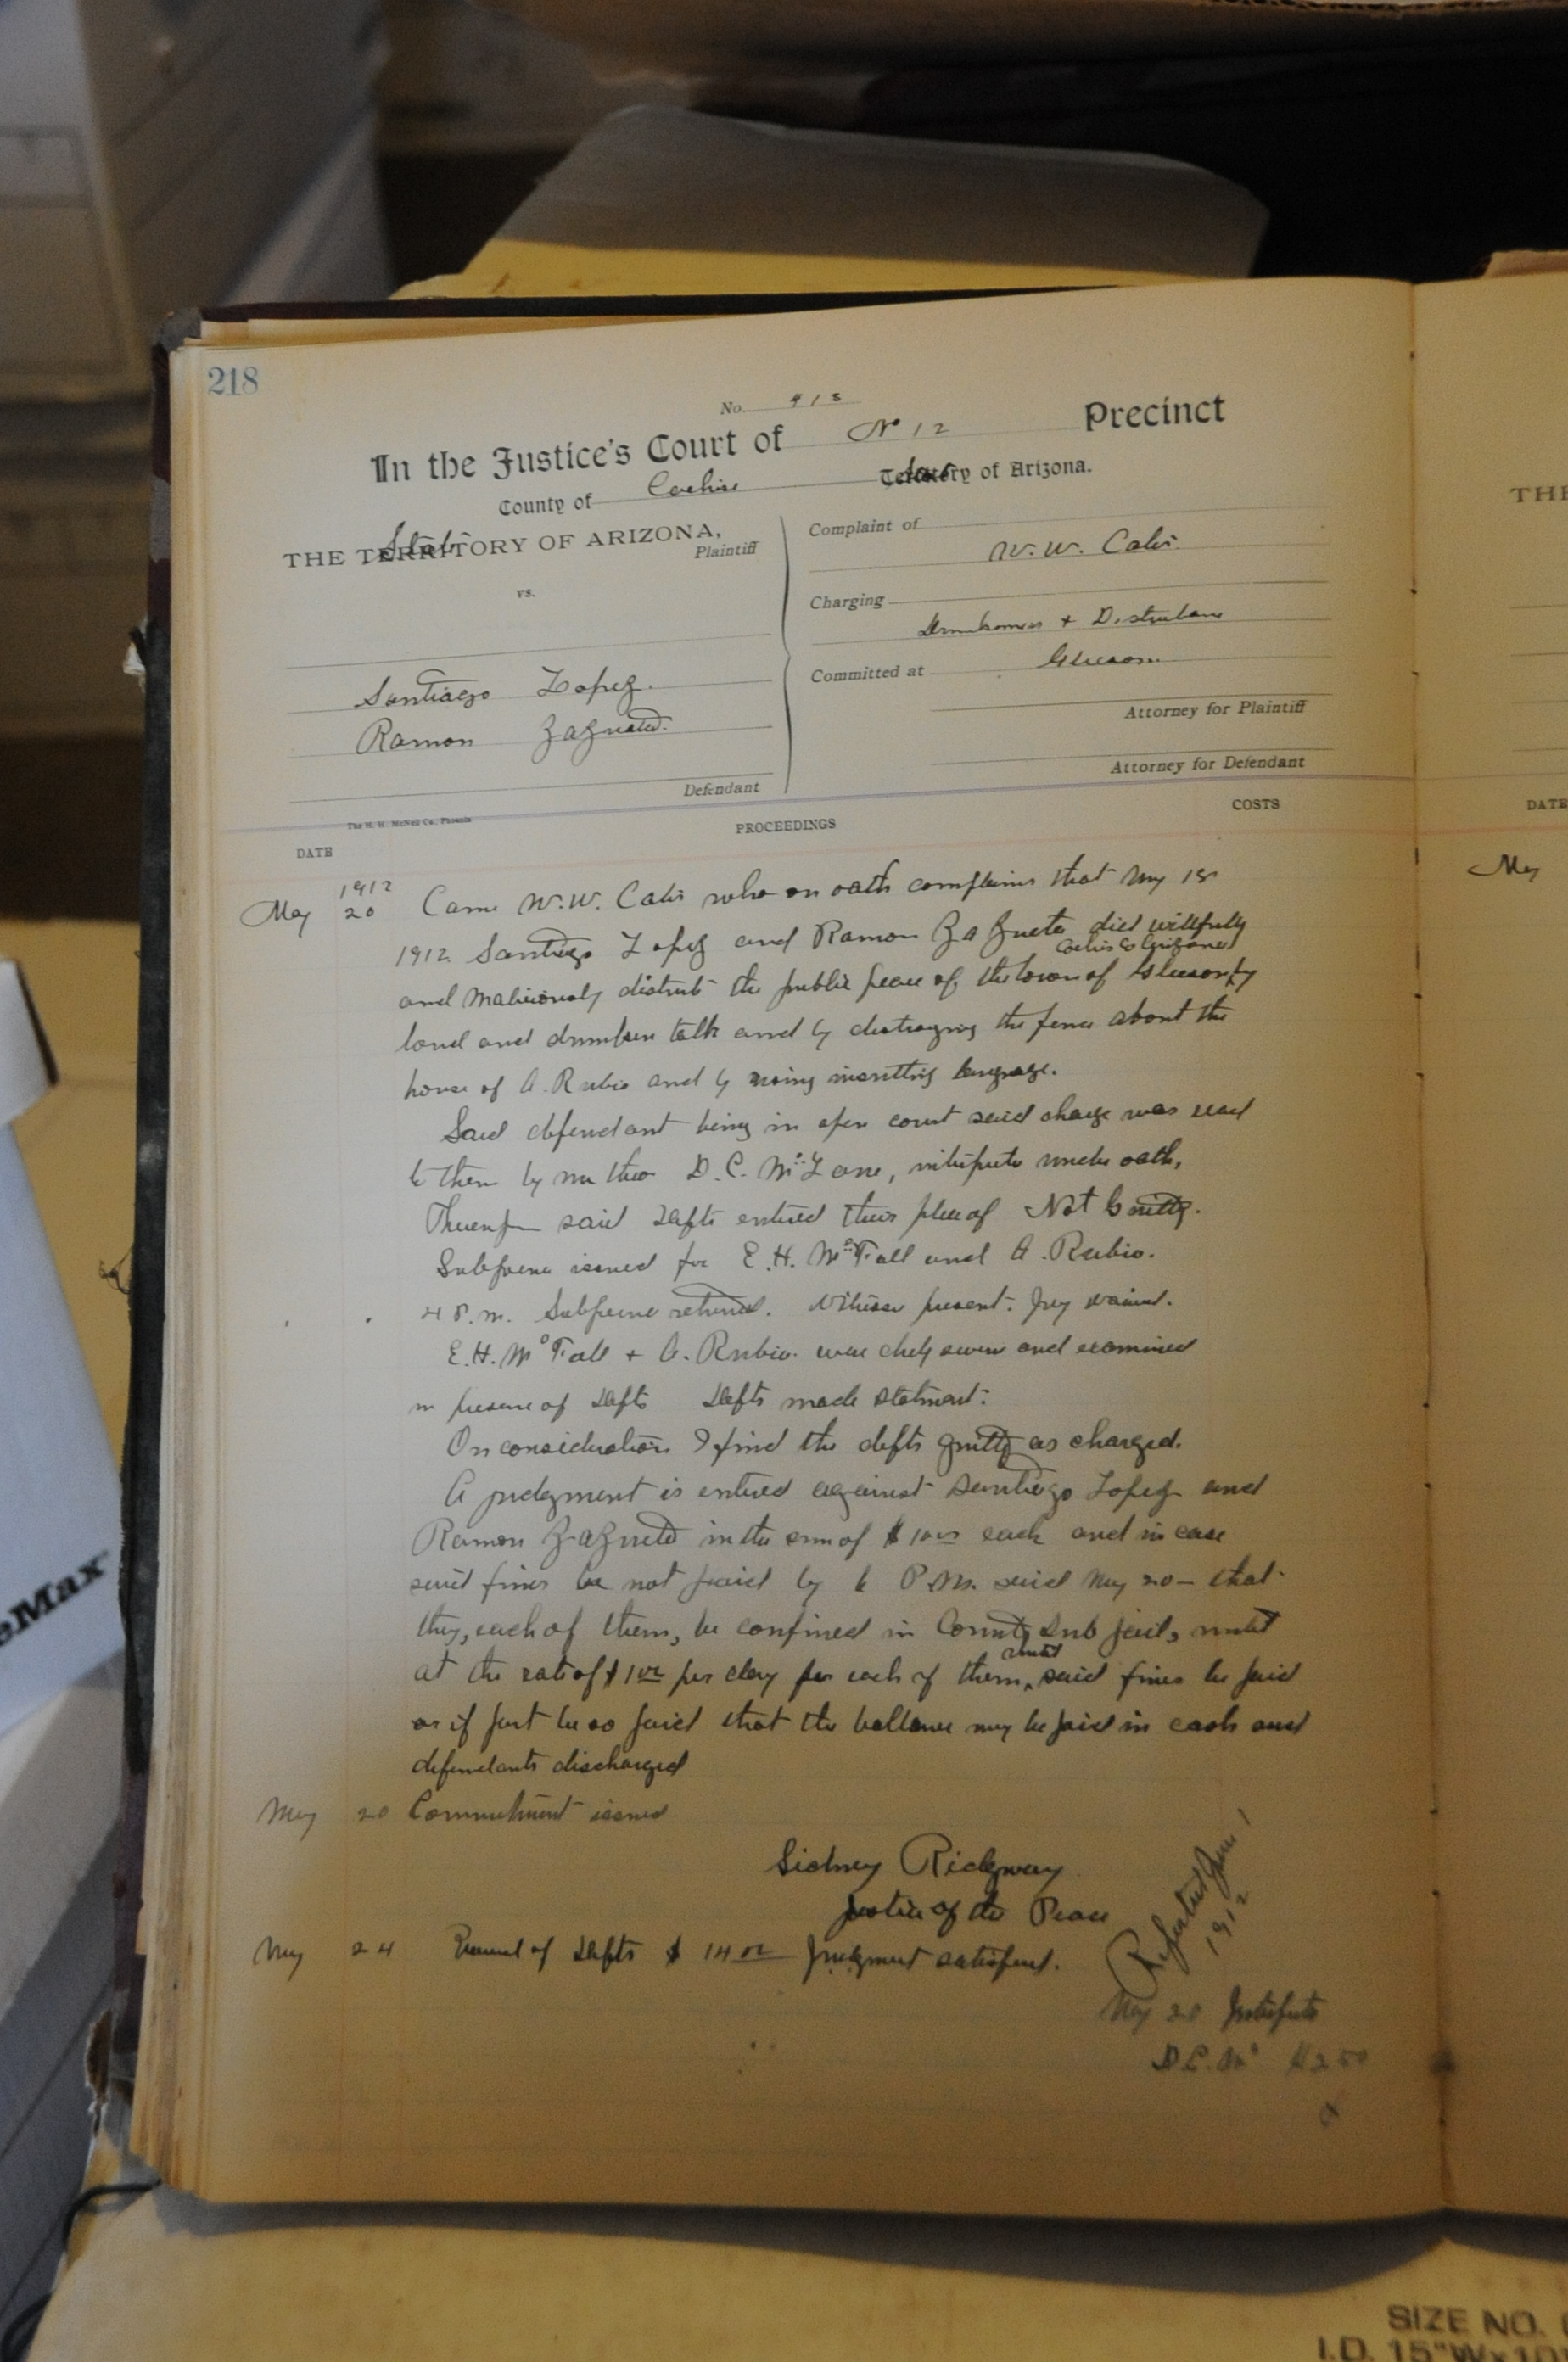 218
No. 413
In the Justice's Court of No 12 Precinct
County of Cochise State Territory of Arizona.
State
THE TERRITORY OF ARIZONA,
Plaintiff
vs.
Santiago Lopez.
Ramon Zazueta.
Defendant
Complaint of
W. W. Cates
Charging
Drunkenness + Disturbance
Committed at Gleeson.
Attorney for Plaintiff
Attorney for Defendant
The H. H. McNeil Co., Phoenix
DATE
PROCEEDINGS
COSTS
1912
May 20 Came W. W. who on oath complains that May 18
1912. Santiago Lopez and Ramon Zazueta did willfully
Cochise Co Arizona
and maliciously disturb the public peace of the town of Gleeson by
loud and drunken talk and by destroying the fence about the
house of A. Rubio and by using insulting language.
Said defendant being in open court said charge was read
to them by me thro D. C. McLane, interpreter under oath,
Thereupon said Defts entered their plea of Not Guilty.
Subpoena issued for E. H. McFall and A. Rubio.
4 P.m. Subpoena returned. Witnesses present. Jury waived.
E. H. McFall + A. Rubio. were duly sworn and examined
in presence of Defts Defts made statment.
On consideration I find the defts guilty as charged.
A judgment is entered against Santiago Lopez and
Ramon Zazueta in the sum of $10 00 each and in case
said fines be not paid by 6 P.M. said May 20 - that
they, each of them, be confined in County Sub jail, until
until
at the rate of $1 00 per day for each of them, said fines be paid
or if part be so paid that the ballance may be paid in cash and
defendants discharged
May 20 Commitment issued
Sidney Ridgway
Justice of the Peace
May 24 Received of Defts $ 14 00 Judgment satisfied.
Reported June 1
1912
May 20 Interpreter
D. C. Mc $2 50
THE
DATE
May
eMax
SIZE NO.
I.D. 15"W x 10